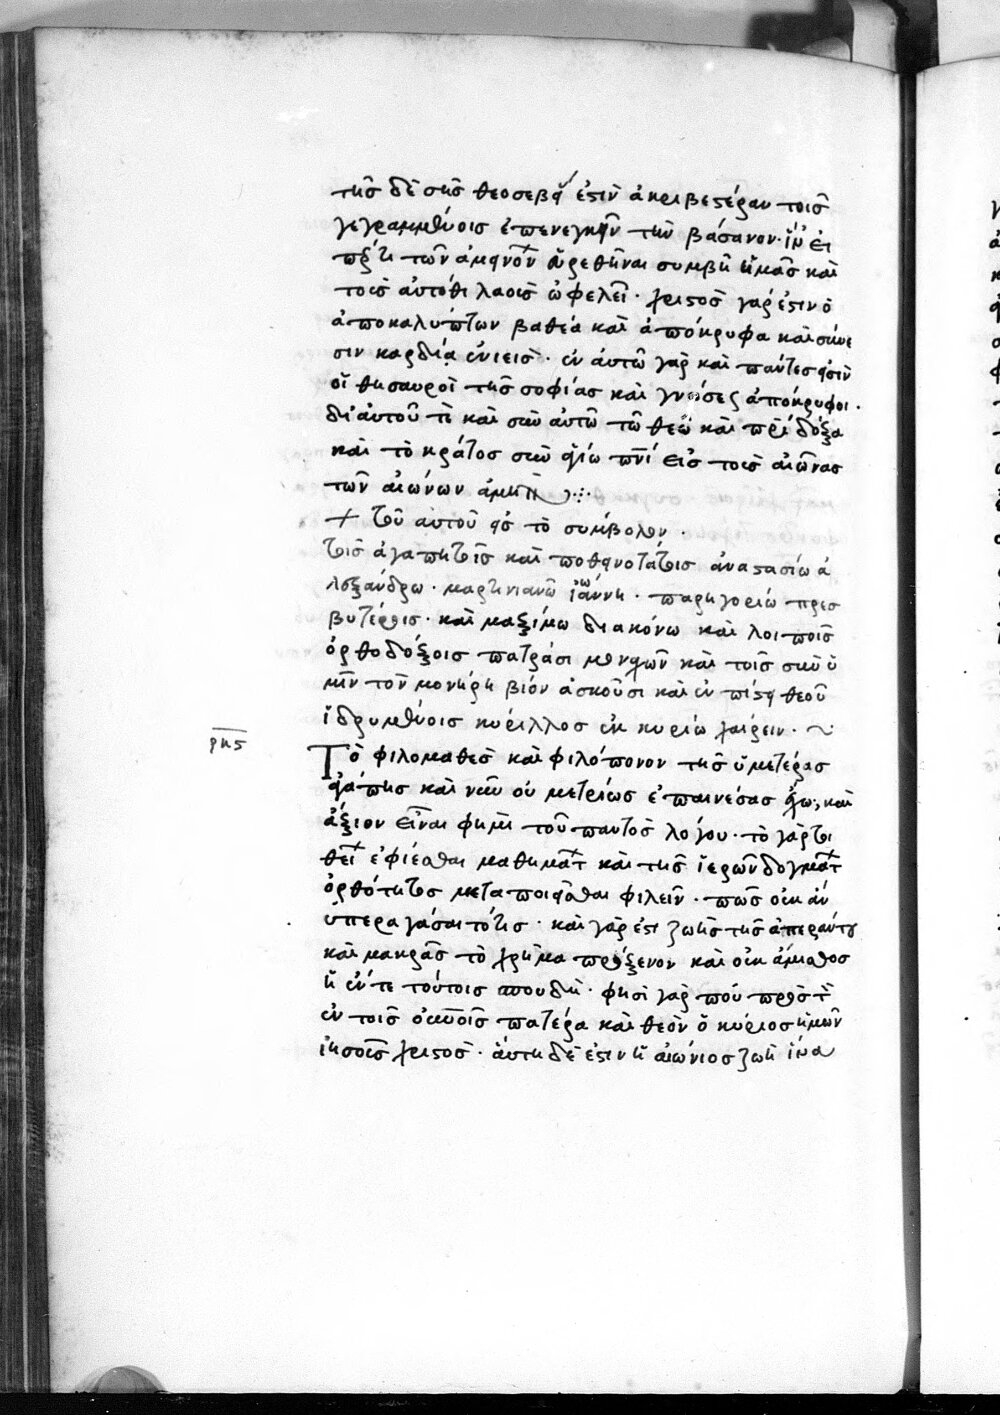 τῆς δὲ σῆς θεοσεβεί ἐστὶν ἀκριβεστέραν τοῖς
γεγραμμένοις ἐπενεγκεῖν τὴν βάσανον· ἵν' εἴ
τῶν ἀμεινόν εὑρεθῆναι συμβῆ ἡμᾶς καὶ
τοὺς αὐτόθι λαοὺς ὠφελεῖ· χριστὸς γάρ ἐστιν ὁ
ἀποκαλύπτων βαθέα καὶ ἀπόκρυφα καὶ σύνε
σιν καρδίᾳ ἐνιείς· ἐν αὐτῷ γὰρ καὶ πάντες εἰσὶν
οἱ θησαυροὶ τῆς σοφίας καὶ γνώσεως ἀπόκρυφοι·
δι' αὐτοῦ τὲ καὶ σὺν αὐτῷ τῷ θεῷ καὶ πρὶ δόξα
καὶ τὸ κράτος σὺν ἁγίω πνὶ εἰς τοὺς αἰῶνας
τῶν αἰώνων ἀμήν
+ τοῦ αὐτοῦ εἰς τὸ σύμβολον·
τοῖς ἀγαπητοῖς καὶ ποθεινοτάτοις ἀναστασίω ἀ
λεξάνδρω· μαρτινιανῶ ἰωάννη· παρηγορίω πρεσ
βυτέροις· καὶ μαξίμω διακόνω καὶ λοιποῖς
ὀρθοδόξοις πατράσι μοναχῶν καὶ τοῖς σὺν ὑ
μῖν τὸν μονήρη βίον ἀσκοῦσι καὶ ἐν πίστει θεοῦ
ἱδρυμένοις κύριλλος ἐν κυρίω χαίρειν·
ρκς
Τὸ φιλομαθὲς καὶ φιλόπονον τῆς ὑμετέρας
ἀγάπης καὶ νῦν οὐ μετρίως ἐπαινέσας ἔχω, καὶ
ἄξιον εἶναι φημὶ τοῦ παντὸς λόγου· τὸ γάρ τοι
θεί ἐφίεσθαι μαθημάτ καὶ τῆς ἱερῶν δογμάτ
ὀρθότητος μεταποιεῖσθαι φιλεῖν· πῶς οὐκ ἄν
ὑπεραγάσαιτό τις· καὶ γάρ ἐστι ζωῆς τῆς ἀπεράντου
καὶ μακρᾶς τὸ χρῆμα πρόξενον καὶ οὐκ ἄμισθος
ἡ ἔν τε τούτοις σπουδή· φησὶ γάρ που πρὸς τὸν
ἐν τοῖς οὐνοῖς πατέρα καὶ θεὸν ὁ κύριος ἡμῶν
ἰησοῦς χριστὸς· αὕτη δέ ἐστιν ἡ αἰώνιος ζωὴ ἵνα